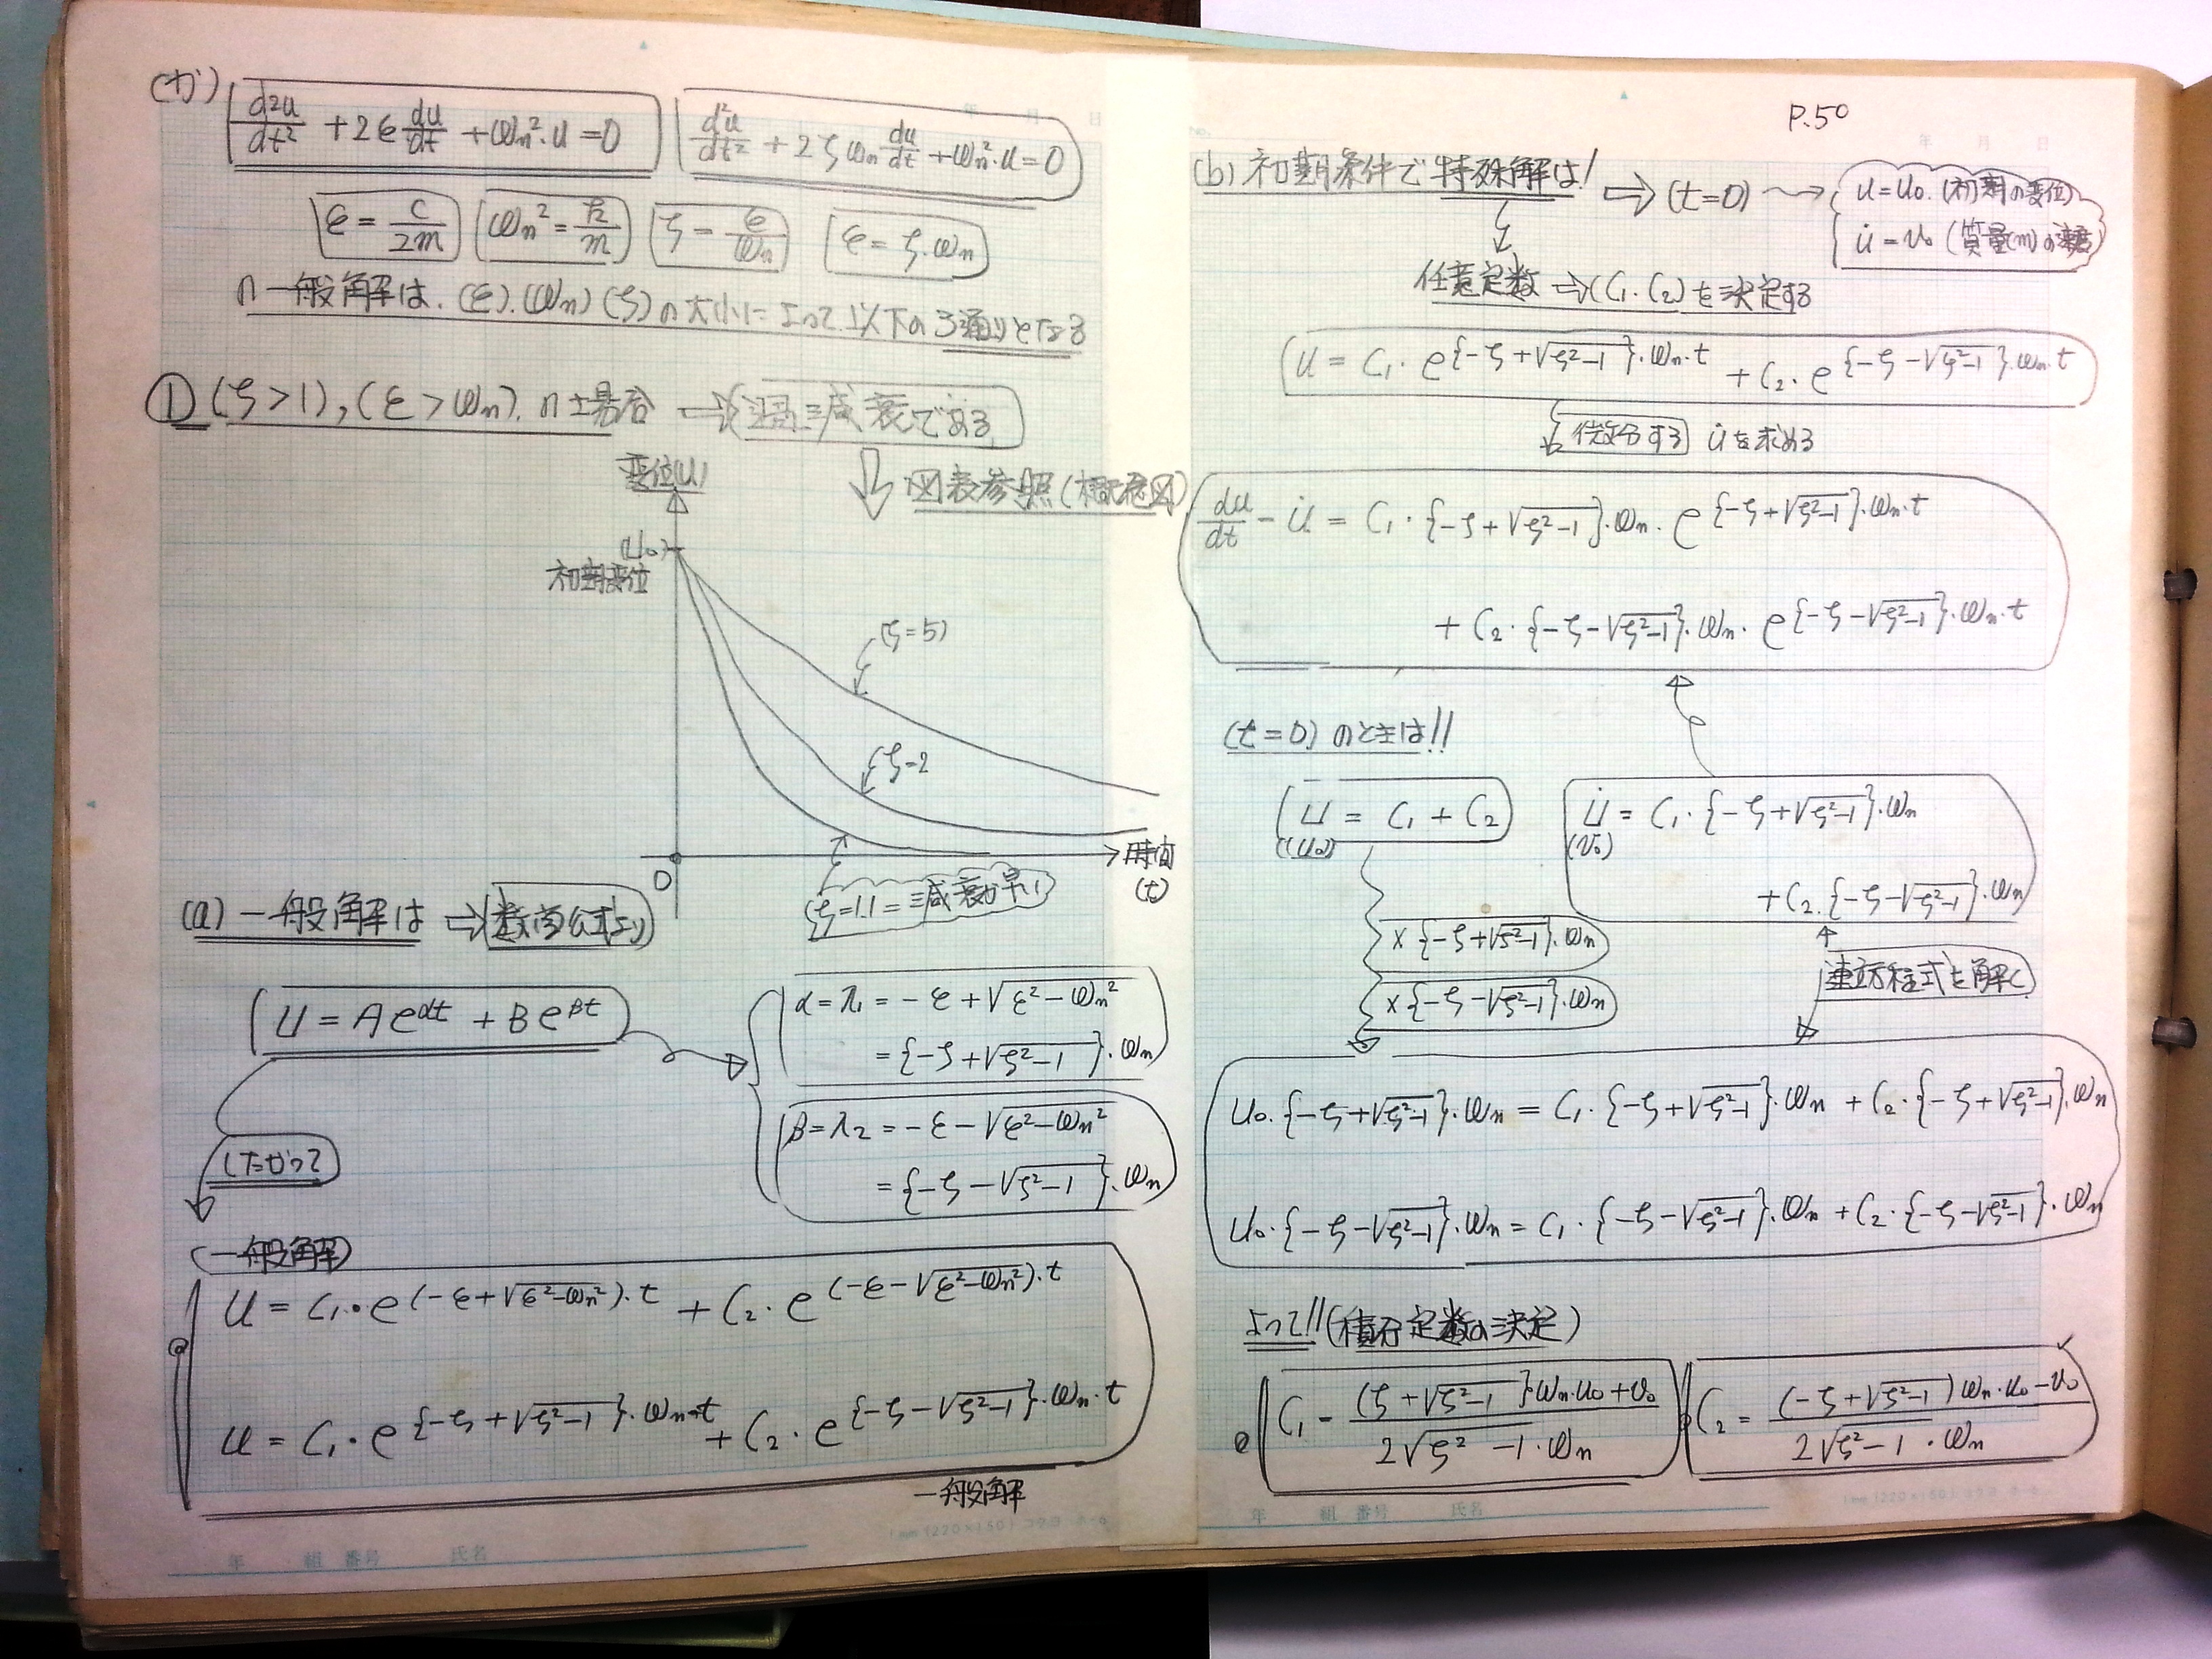 (が)
d²u/dt² + 2ε du/dt + ωn²·u = 0
d²u/dt² + 2ζωn du/dt + ωn²·u = 0
ε = c/2m
ωn² = k/m
ζ = ε/ωn
ε = ζ·ωn
の一般解は、(ε).(ωn)(ζ)の大小によって以下の3通りとなる
① (ζ>1),(ε>ωn).の場合 ⇒ 過減衰である
図表参照(概念図)
変位(u)
(u₀)
初期変位
(ζ=5)
(ζ=2
時間
(t)
0
ζ=1.1=減衰が早い
(a) 一般解は ⇒ 数学公式より
U = Ae^αt + Be^βt
α=λ₁ = -ε + √ε²-ωn²
= {-ζ+√ζ²-1}·ωn
β=λ₂ = -ε - √ε²-ωn²
= {-ζ-√ζ²-1}·ωn
したがって
(一般解)
u = C₁·e^(-ε+√ε²-ωn²)·t + C₂·e^(-ε-√ε²-ωn²)·t
u = C₁·e^{-ζ+√ζ²-1}·ωn·t + C₂·e^{-ζ-√ζ²-1}·ωn·t
一般解
年 組 番号 氏名
P.50
No.
年 月 日
(b) 初期条件で特殊解は! ⇒ (t=0)
u=u₀.(初期の変位)
u̇=v₀ (質量(m)の速度)
任意定数 ⇒ (C₁.C₂)を決定する
u = C₁·e^{-ζ+√ζ²-1}·ωn·t + C₂·e^{-ζ-√ζ²-1}·ωn·t
微分する u̇を求める
du/dt = u̇ = C₁·{-ζ+√ζ²-1}·ωn·e^{-ζ+√ζ²-1}·ωn·t
+ C₂·{-ζ-√ζ²-1}·ωn·e^{-ζ-√ζ²-1}·ωn·t
(t=0) のときは!!
U = C₁ + C₂
(u₀)
u̇ = C₁·{-ζ+√ζ²-1}·ωn
(v₀)
+C₂.{-ζ-√ζ²-1}·ωn
×{-ζ+√ζ²-1}·ωn
×{-ζ-√ζ²-1}·ωn
連立方程式を解く
u₀·{-ζ+√ζ²-1}·ωn = C₁·{-ζ+√ζ²-1}·ωn + C₂·{-ζ+√ζ²-1}·ωn
u₀·{-ζ-√ζ²-1}·ωn = C₁·{-ζ-√ζ²-1}·ωn + C₂·{-ζ-√ζ²-1}·ωn
よって!!(積分定数の決定)
C₁ = (ζ+√ζ²-1}ωn·u₀+v₀ / 2√ζ²-1·ωn
C₂ = (-ζ+√ζ²-1)ωn·u₀-v₀ / 2√ζ²-1·ωn
年 組 番号 氏名